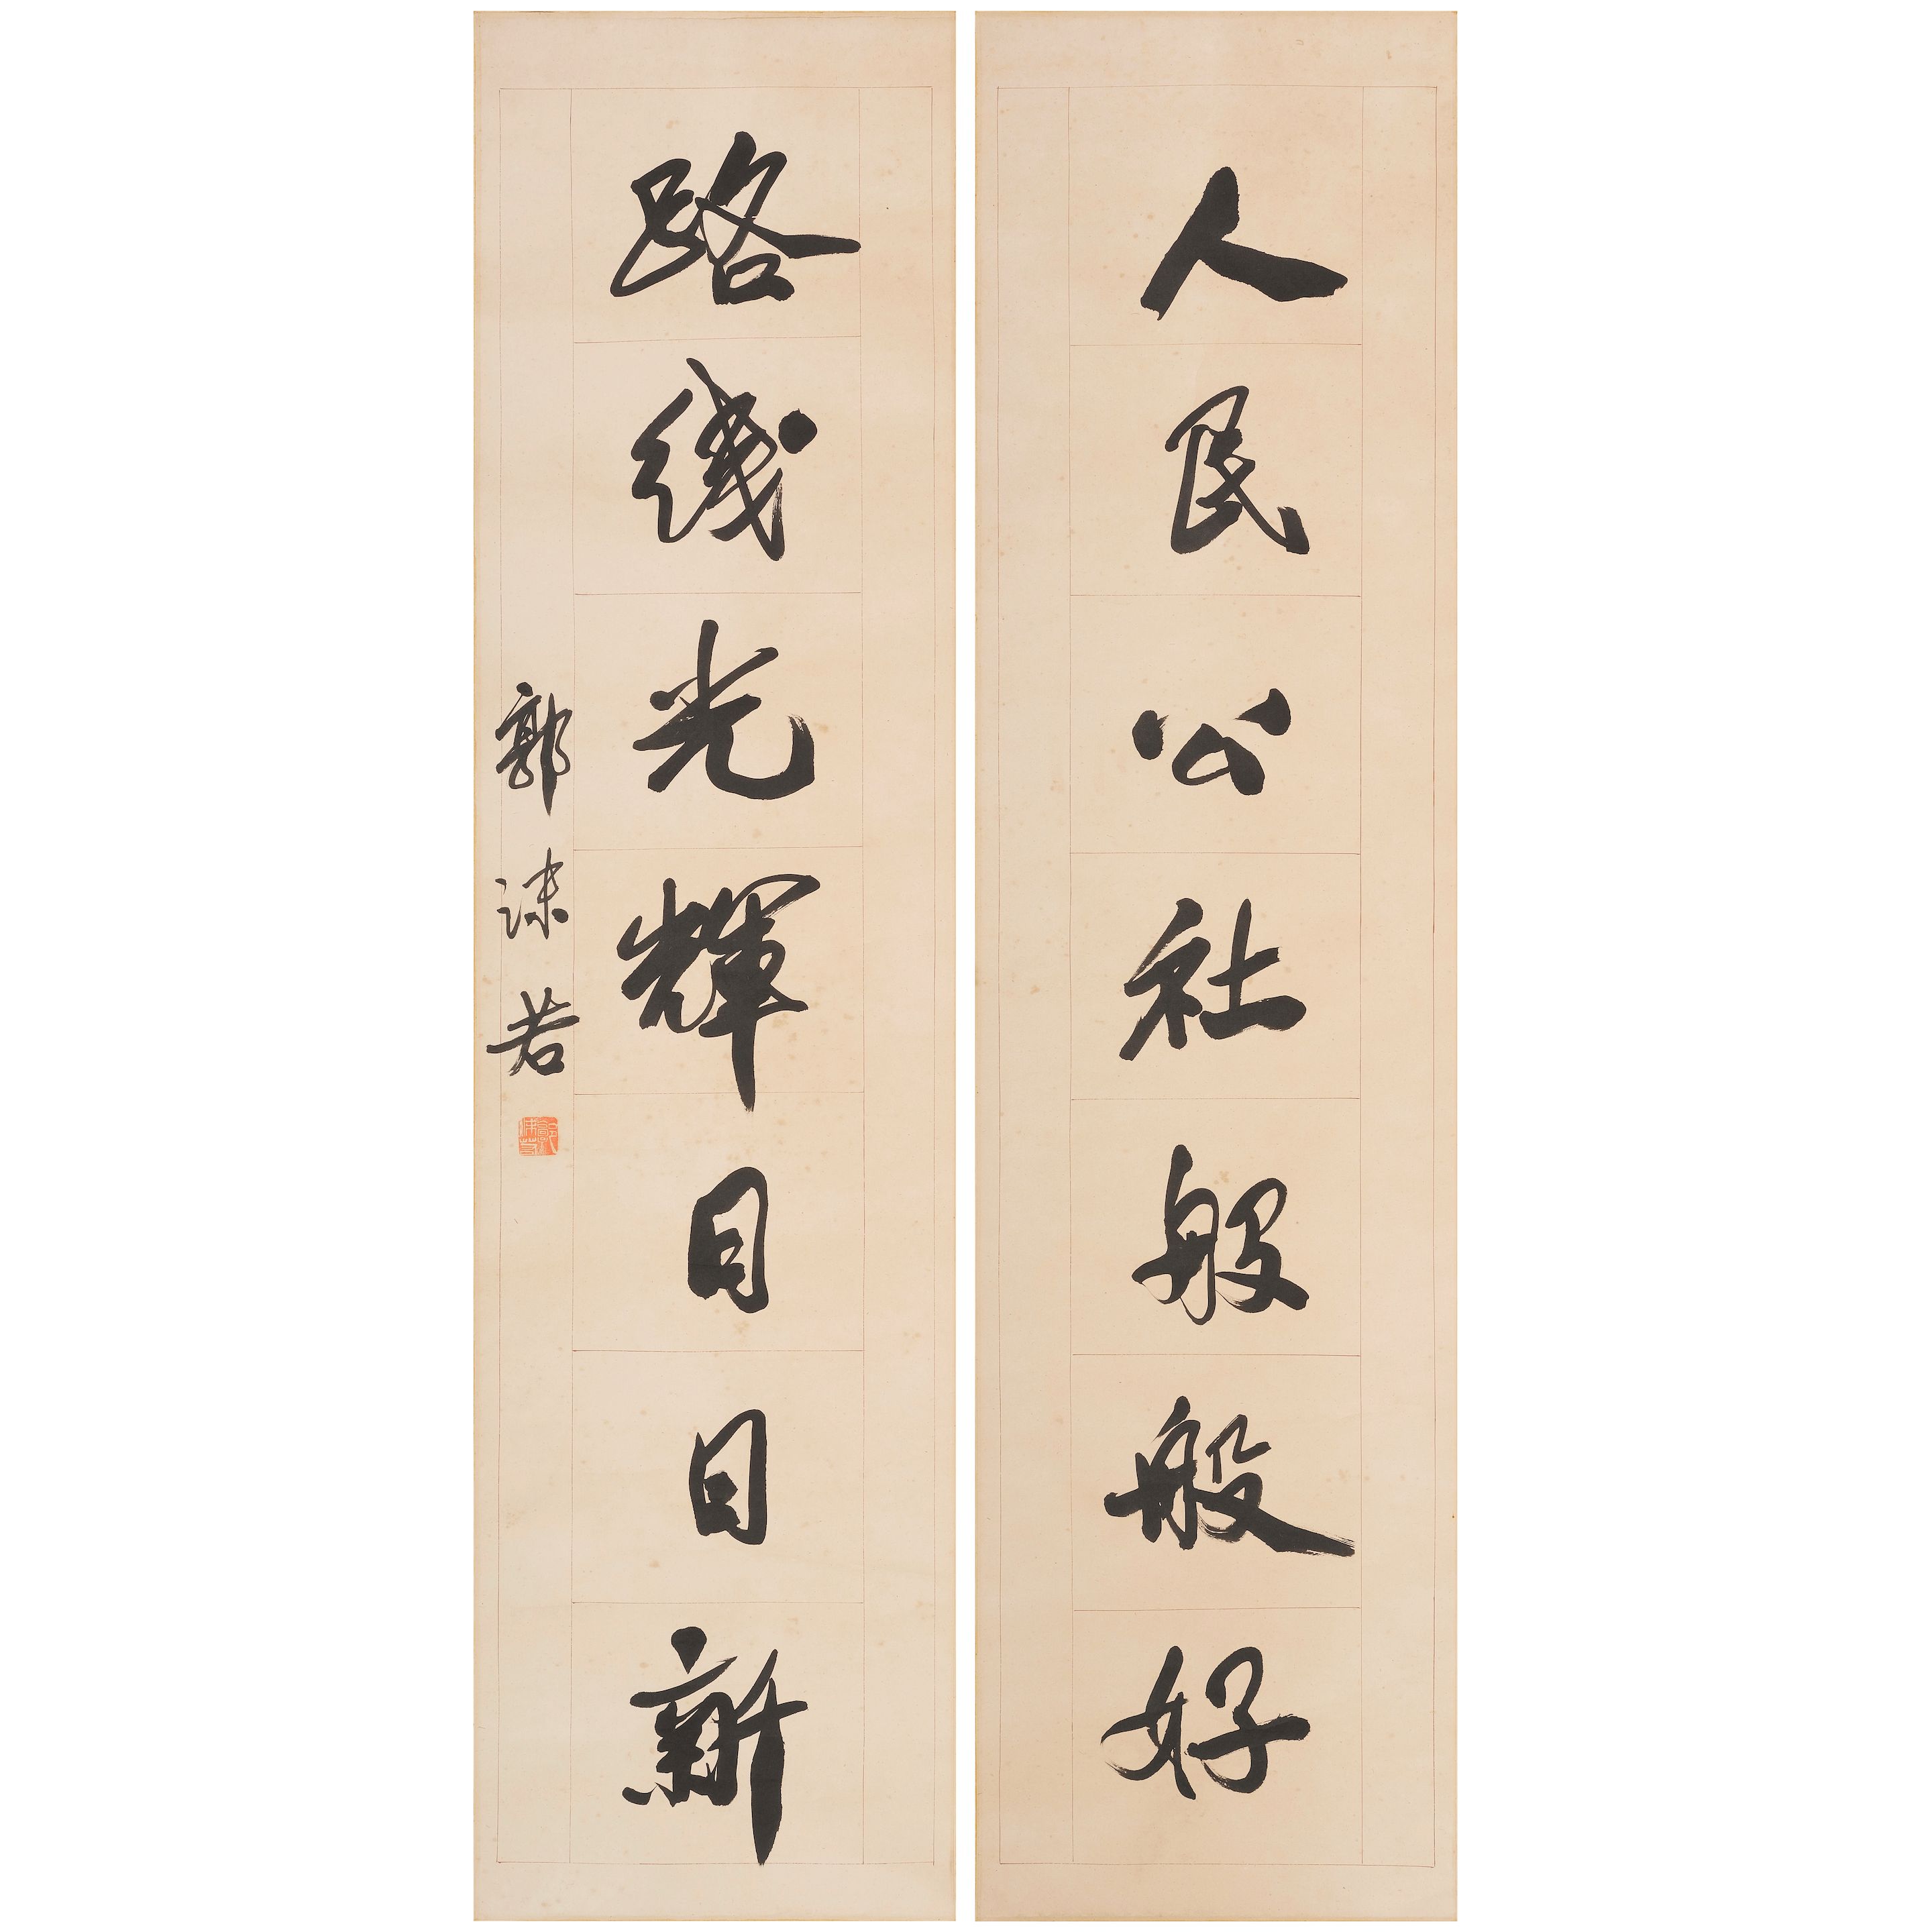 人民公社般般好
路线光辉日日新
郭沫若
郭沫若